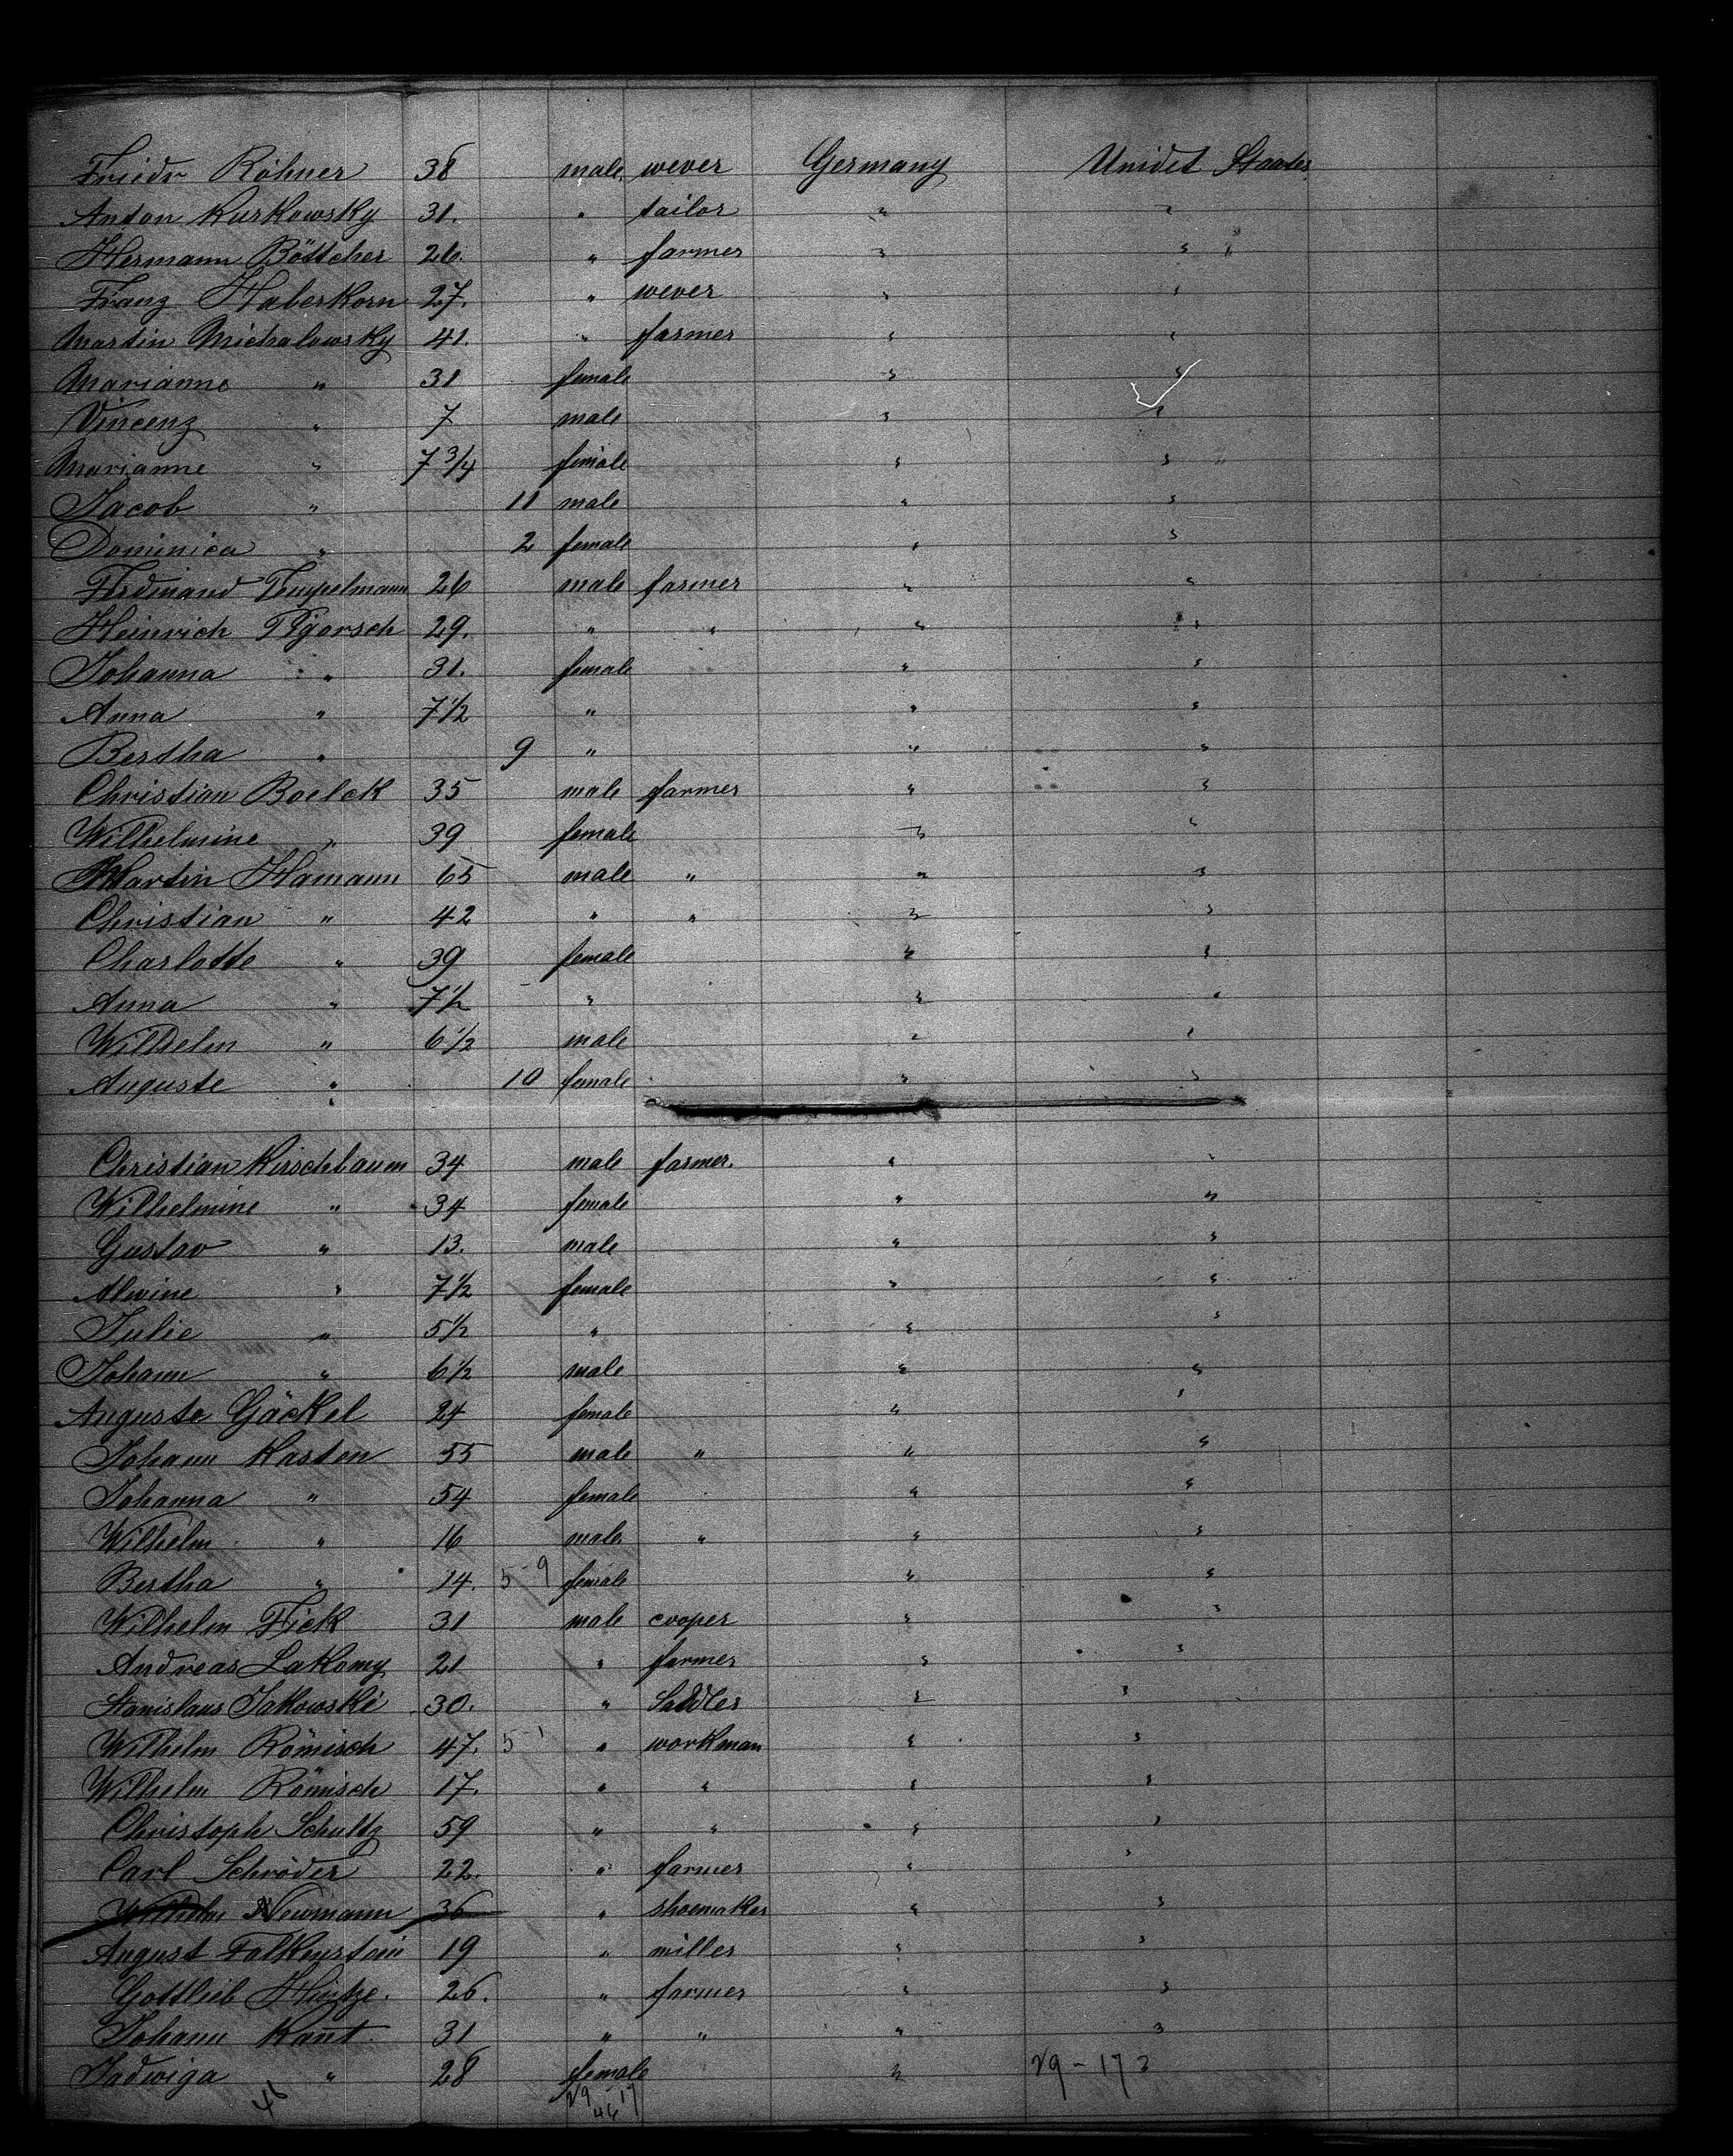 Friedr Röhner 38 male wever Germany Unidet Staates
Anton Kurkowsky 31. " tailor " "
Hermann Böttcher 26. " farmer " "
Franz Haberkorn 27. " wever " "
Martin Michalowsky 41. " farmer " "
Marianne " 31 female " "
Vincenz " 7 male " "
Marianne " 7 3/4 female " "
Jacob " 11 male " "
Dominica " 2 female " "
Ferdinand Tempelmann 26 male farmer " "
Heinrich 29. " " " "
Johanna " 31. female " "
Anna " 7 1/2 " " "
Bertha " 9 " " "
Christian Boelck 35 male farmer " "
Wilhelmine " 39 female " "
Martin Hamann 65 male " " "
Christian " 42 " " " "
Charlotte " 39 female " "
Anna " 7 1/2 " " "
Wilhelm " 6 1/2 male " "
Auguste " 10 female " "
Christian Kirschbaum 34 male farmer. " "
Wilhelmine " 34 female " "
Gustav " 13. male " "
Alwine " 7 1/2 female " "
Julie " 5 1/2 " " "
Johann " 6 1/2 male " "
Auguste Gäckel 24 female " "
Johann Kasten 55 male " " "
Johanna " 54 female " "
Wilhelm " 16 male " " "
Bertha " 14. 5-9 female " "
Wilhelm Fick 31 male cooper " "
Andreas Lakomy 21 " farmer " "
Stanislaus Jakowski 30. " Saddler " "
Wilhelm Römisch 47. 5-1 " workman " "
Wilhelm Römisch 17. " " " "
Christoph Schultz 59 " " " "
Carl Schröder 22. " farmer " "
Wilhelm Newmann 36 " shoemaker " "
August Falkenstein 19 " miller " "
Gottlieb Hintze 26. " farmer " "
Johann Kant 31 " " " "
Jadwiga " 28 female " 29-17 3
46 29 17
46